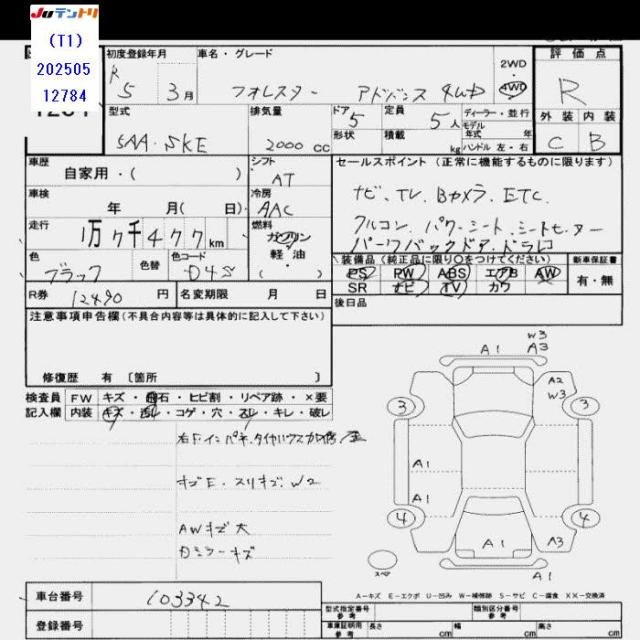 JUテントリ
(T1)
202505
12784
初度登録年月
R 5 3 月
車名・グレード
フォレスター アドバンス 4WD
2WD
4WD
評価点
R
外装 内装
C B
型式
5AA・SKE
排気量
2000 cc
ドア 5
形状
定員 5 人
積載 kg
ディーラー・並行
モデル年式 年式
ハンドル 左・右
車歴
自家用・( )
シフト
AT
セールスポイント (正常に機能するものに限ります)
ナビ、TV、Bカメラ、ETC、
クルコン、パワーシート、シートヒーター
パワーバックドア、ドラレコ
車検
年 月( 日)
冷房
AAC
走行
1万7千477 km
燃料
ガソリン
軽・油
色
ブラック
色替
色コード
D4S
装備品 (純正品に限り○をつけてください)
PS PW ABS エアB AW
SR ナビ TV カワ
新車保証書
有・無
R券 12490 円
名変期限 月 日
後日品
注意事項申告欄 (不具合内容等は具体的に記入して下さい)
修復歴 有 〔箇所 〕
検査員 FW キズ・飛石・ヒビ割・リペア跡・×要
記入欄 内装 キズ・コゲ・穴・スレ・キレ・破レ
キズE・スリキズ・W2
AWキズ大
カミラーキズ
W3
A1 A3
A2
W3
3 3
A1
A1
4 4
A1 A3
A1
スペア
A－キズ E－エクボ U－凹み W－補修跡 S－サビ C－腐食 XX－交換済
車台番号 103342
登録番号
型式指定番号 参考
類別区分番号 参考
車庫証明用 参考 長さ cm 幅 cm 高さ cm